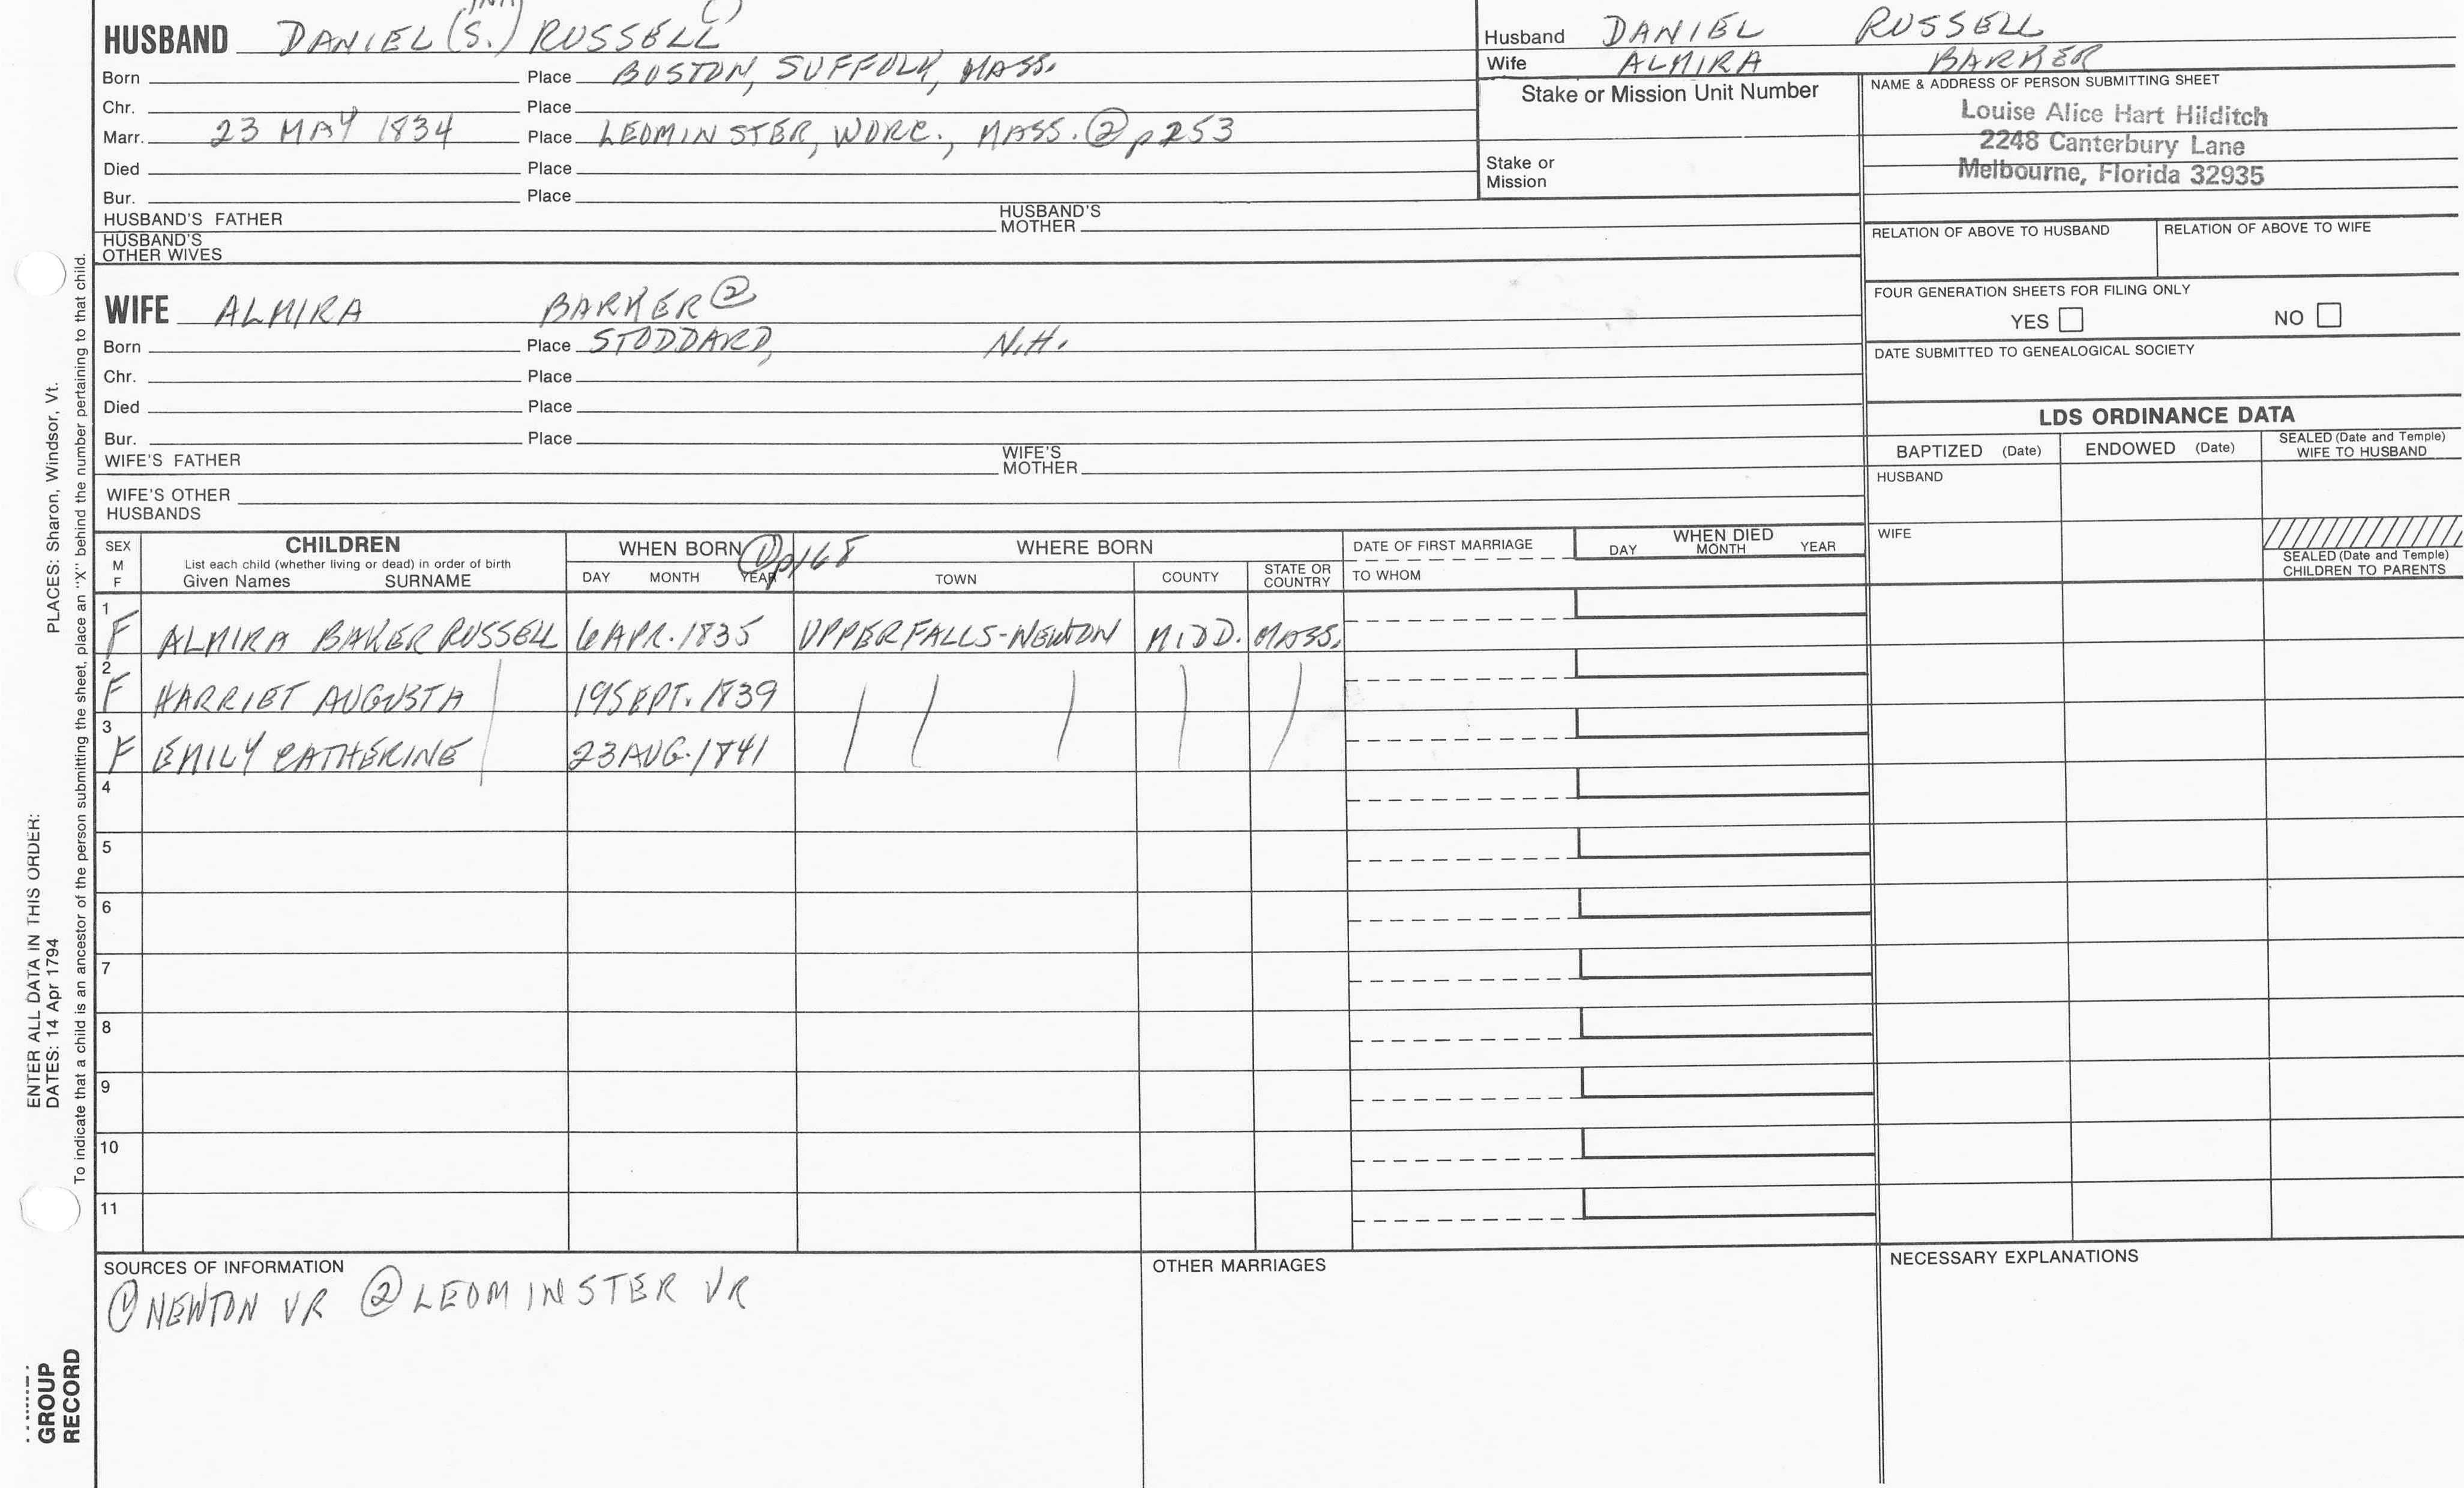 HUSBAND DANIEL (S.) RUSSELL
Born Place BOSTON, SUFFOLK, MASS.
Chr. Place
Marr. 23 MAY 1834 Place LEOMINSTER, WORC., MASS. ② p253
Died Place
Bur. Place
HUSBAND'S FATHER HUSBAND'S MOTHER
HUSBAND'S OTHER WIVES
Husband DANIEL RUSSELL
Wife ALMIRA BARKER
Stake or Mission Unit Number
Stake or Mission
NAME & ADDRESS OF PERSON SUBMITTING SHEET
Louise Alice Hart Hilditch
2248 Canterbury Lane
Melbourne, Florida 32935
RELATION OF ABOVE TO HUSBAND RELATION OF ABOVE TO WIFE
FOUR GENERATION SHEETS FOR FILING ONLY
YES NO
DATE SUBMITTED TO GENEALOGICAL SOCIETY
WIFE ALMIRA BARKER ②
Born Place STODDARD, N.H.
Chr. Place
Died Place
Bur. Place
WIFE'S FATHER WIFE'S MOTHER
WIFE'S OTHER HUSBANDS
LDS ORDINANCE DATA
BAPTIZED (Date) ENDOWED (Date) SEALED (Date and Temple) WIFE TO HUSBAND
HUSBAND
WIFE
SEALED (Date and Temple) CHILDREN TO PARENTS
SEX M F
CHILDREN
List each child (whether living or dead) in order of birth
Given Names SURNAME
WHEN BORN ① p168
DAY MONTH YEAR
WHERE BORN
TOWN COUNTY STATE OR COUNTRY
DATE OF FIRST MARRIAGE
TO WHOM
WHEN DIED
DAY MONTH YEAR
1 F ALMIRA BAKER RUSSELL 6 APR. 1835 UPPER FALLS-NEWTON MIDD. MASS.
2 F HARRIET AUGUSTA 19 SEPT. 1839
3 F EMILY CATHERINE 23 AUG. 1841
4
5
6
7
8
9
10
11
SOURCES OF INFORMATION
① NEWTON VR ② LEOMINSTER VR
OTHER MARRIAGES
NECESSARY EXPLANATIONS
PLACES: Sharon, Windsor, Vt.
ENTER ALL DATA IN THIS ORDER:
DATES: 14 Apr 1794
To indicate that a child is an ancestor of the person submitting the sheet, place an "X" behind the number pertaining to that child.
GROUP
RECORD